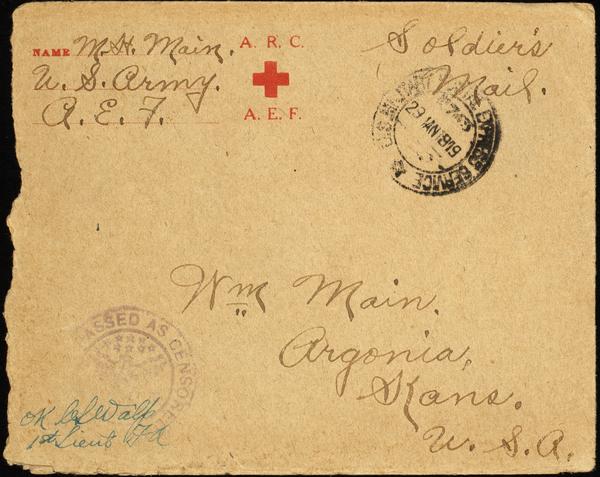 NAME M. H. Main. A. R. C. Soldier's
U. S. Army. Mail.
A. E. F. A. E. F.
EXPRESS SERVICE
29 JAN 1919
Wm Main.
Argonia,
Kans.
U. S. A.
PASSED AS CENSORED
OK
1st Lieut